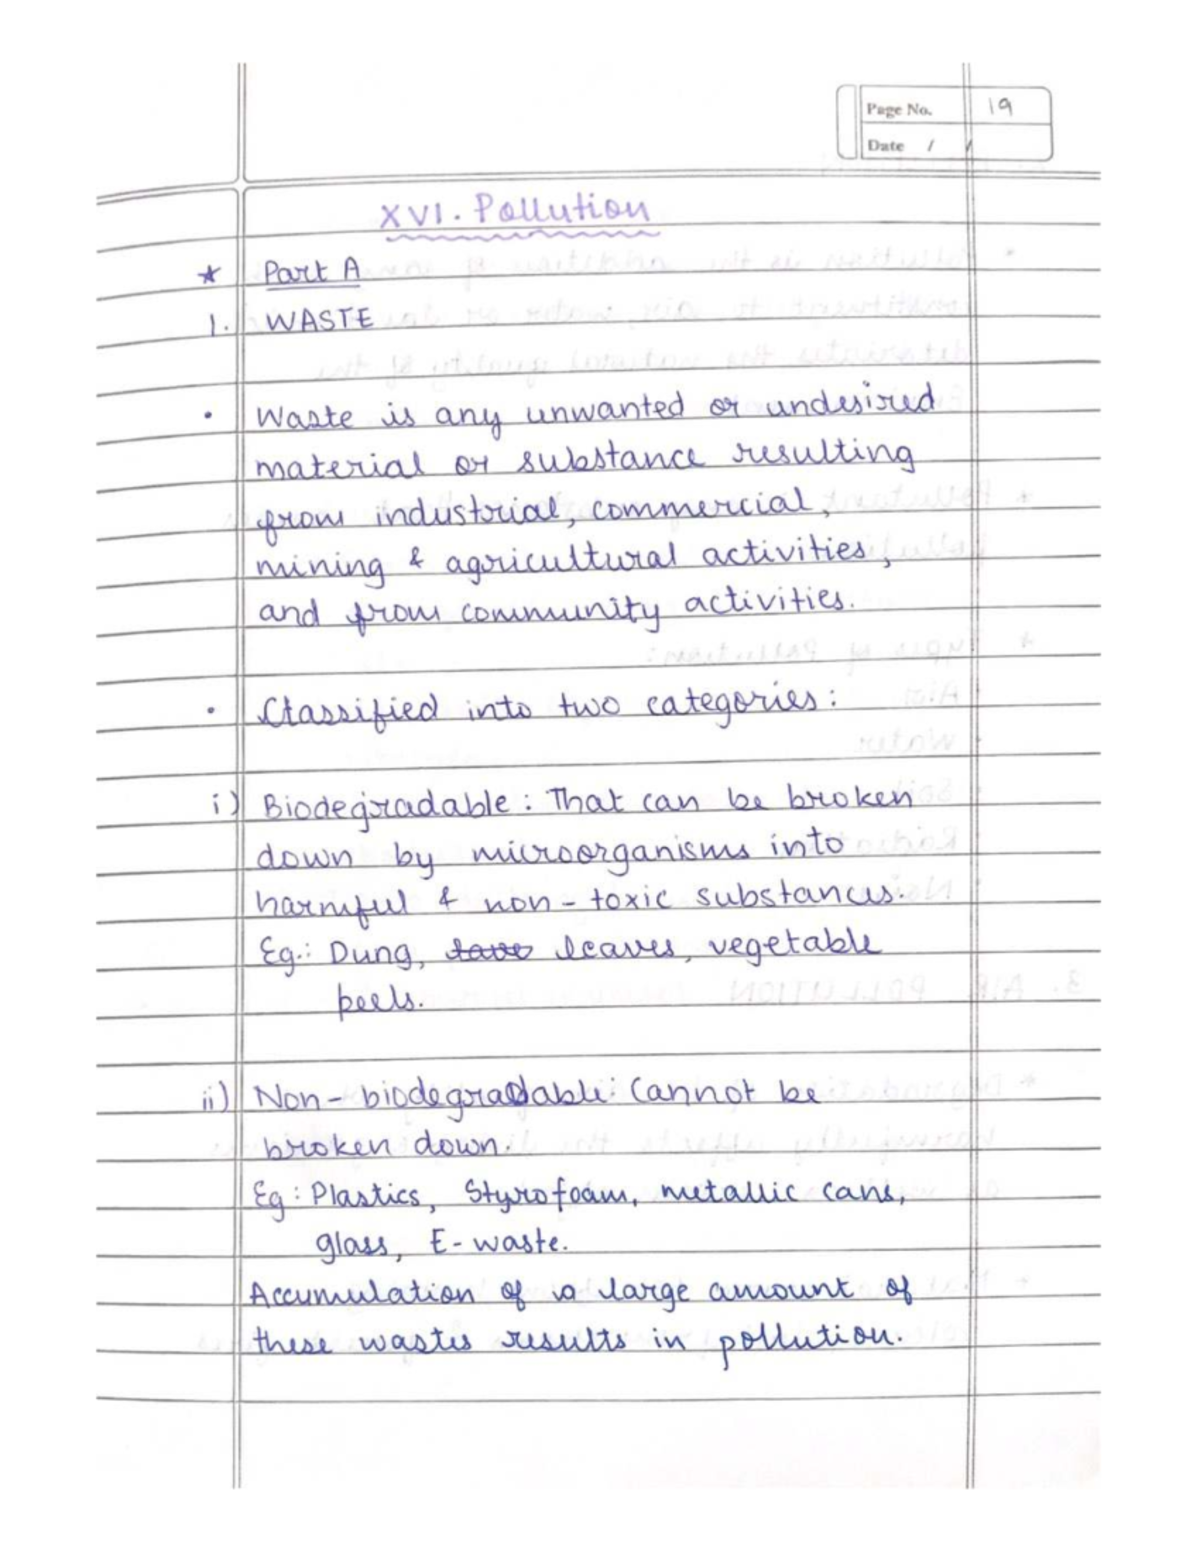 Page No. 19
Date / /
XVI. Pollution
* Part A
1. WASTE
• Waste is any unwanted or undesired
material or substance resulting
from industrial, commercial,
mining & agricultural activities,
and from community activities.
• Classified into two categories:
i) Biodegradable: That can be broken
down by microorganisms into
harmful & non-toxic substances.
Eg.: Dung, leaves, vegetable
peels.
ii) Non-biodegradable: Cannot be
broken down.
Eg: Plastics, Styrofoam, metallic cans,
glass, E-waste.
Accumulation of a large amount of
these wastes results in pollution.